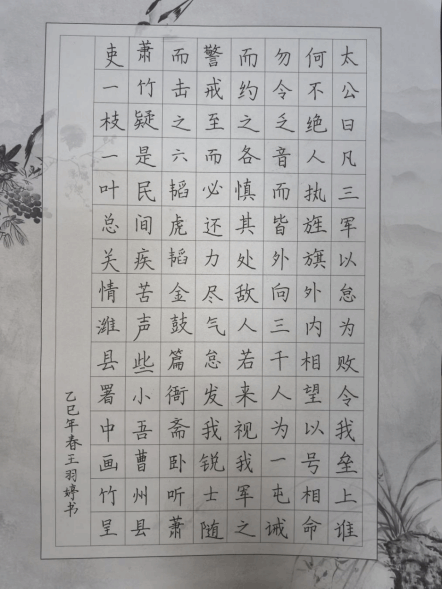 太公曰凡三军以怠为败令我垒上谁
何不绝人执旌旗外内相望以号相命
勿令乏音而皆外向三千人为一屯诫
而约之各慎其处敌人若来视我军之
警戒至而必还力尽气怠发我锐士随
而击之六韬虎韬金鼓篇衙斋卧听萧
萧竹疑是民间疾苦声些小吾曹州县
吏一枝一叶总关情潍县署中画竹呈
乙巳年春王羽婷书